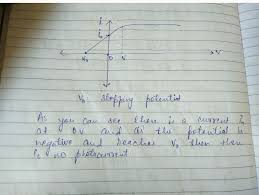 i
i₀
V₀
0
V
V₀ stopping potential
As you can see there is a current i₀
at 0V and as the potential is
negative and reaches V₀ then there
is no photocurrent